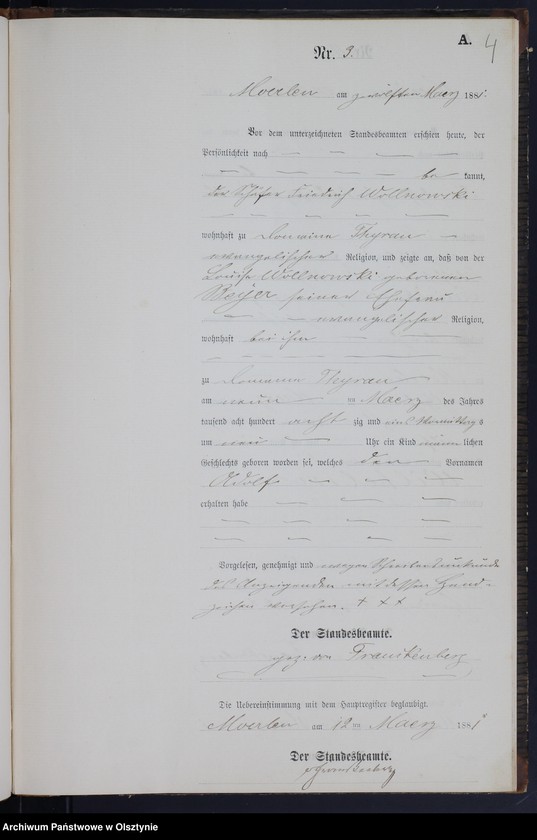 A.
4
Nr. 3.
Moerlen am zwölften Maerz 1881.
Vor dem unterzeichneten Standesbeamten erschien heute, der
Persönlichkeit nach
be kannt,
der Schäfer Friedrich Wollnowski
wohnhaft zu Domaine Thyrau
evangelischer Religion, und zeigte an, daß von der
Louise Wollnowski geborenen
Beyer seiner Ehefrau
evangelischer Religion,
wohnhaft bei ihm
zu Domaine Thyrau
am neun ten Maerz des Jahres
tausend acht hundert acht zig und eins Vormittags
um neun Uhr ein Kind männ lichen
Geschlechts geboren worden sei, welches den Vornamen
Adolf
erhalten habe
Vorgelesen, genehmigt und wegen Schreibensunkunde
des Anzeigenden mit dessen Hand-
zeichen versehen. + + +
Der Standesbeamte.
gez. von
Die Uebereinstimmung mit dem Hauptregister beglaubigt.
Moerlen am 12ten Maerz 1881
Der Standesbeamte.
Archiwum Państwowe w Olsztynie